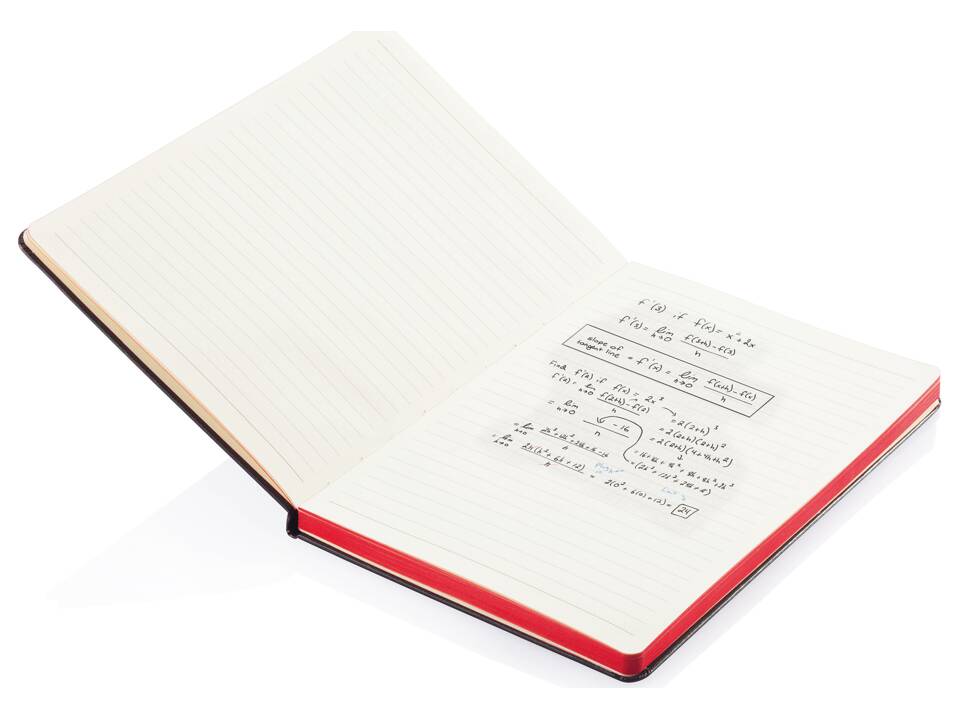 f'(3) if f(x) = x² + 2x
f'(3) = lim h→0 f(3+h) - f(3) / h
slope of tangent line = f'(x) = lim h→0 f(x+h) - f(x) / h
Find f'(2) if f(x) = 2x³
f'(2) = lim h→0 f(2+h) - f(2) / h
= 2(2+h)³
= lim h→0 - 16 / h
= 2(2+h)(2+h)²
= 2(2+h)(4+4h+h²)
= lim h→0
= lim h→0 2h(h² + 6h + 12) / h
= 2(0² + 6(0) + 12) = 24